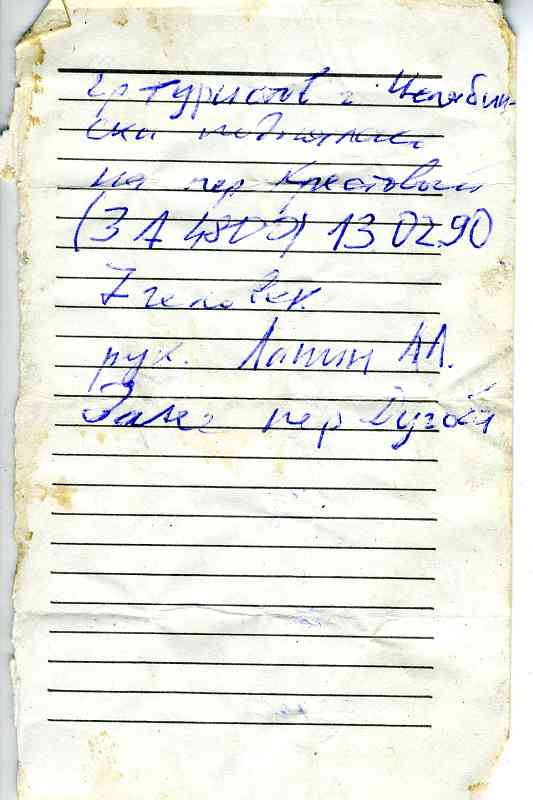 гр туристов г. Челябин-
ска поднялась
на пер Крестовый
(3А 4800) 13 02 90
7 человек
рук. Лапин А.А.
Далее пер Дугоба